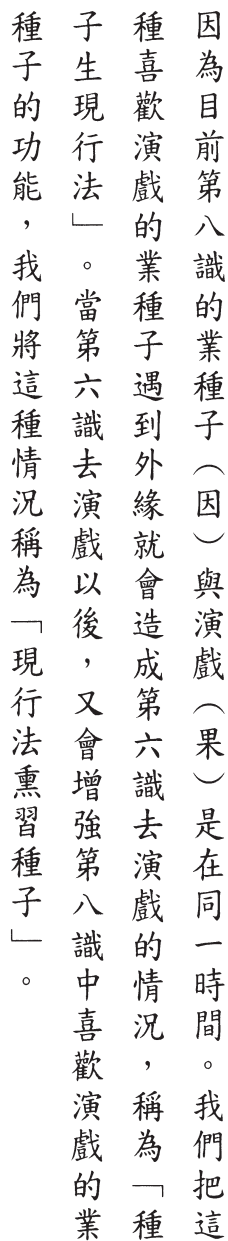 因為目前第八識的業種子（因）與演戲（果）是在同一時間。我們把這
種喜歡演戲的業種子遇到外緣就會造成第六識去演戲的情況，稱為「種
子生現行法」。當第六識去演戲以後，又會增強第八識中喜歡演戲的業
種子的功能，我們將這種情況稱為「現行法熏習種子」。